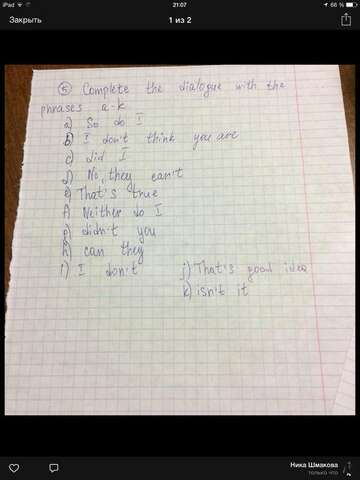 iPad
21:07
66 %
Закрыть
1 из 2
5 Complete the dialogue with the
phrases a-k
a) So do I
b) I don't think you are
c) did I
d) No, they can't
e) That's true
f) Neither do I
g) didn't you
h) can they
i) I don't
j) That's good idea
k) isn't it
Ника Шмакова
только что